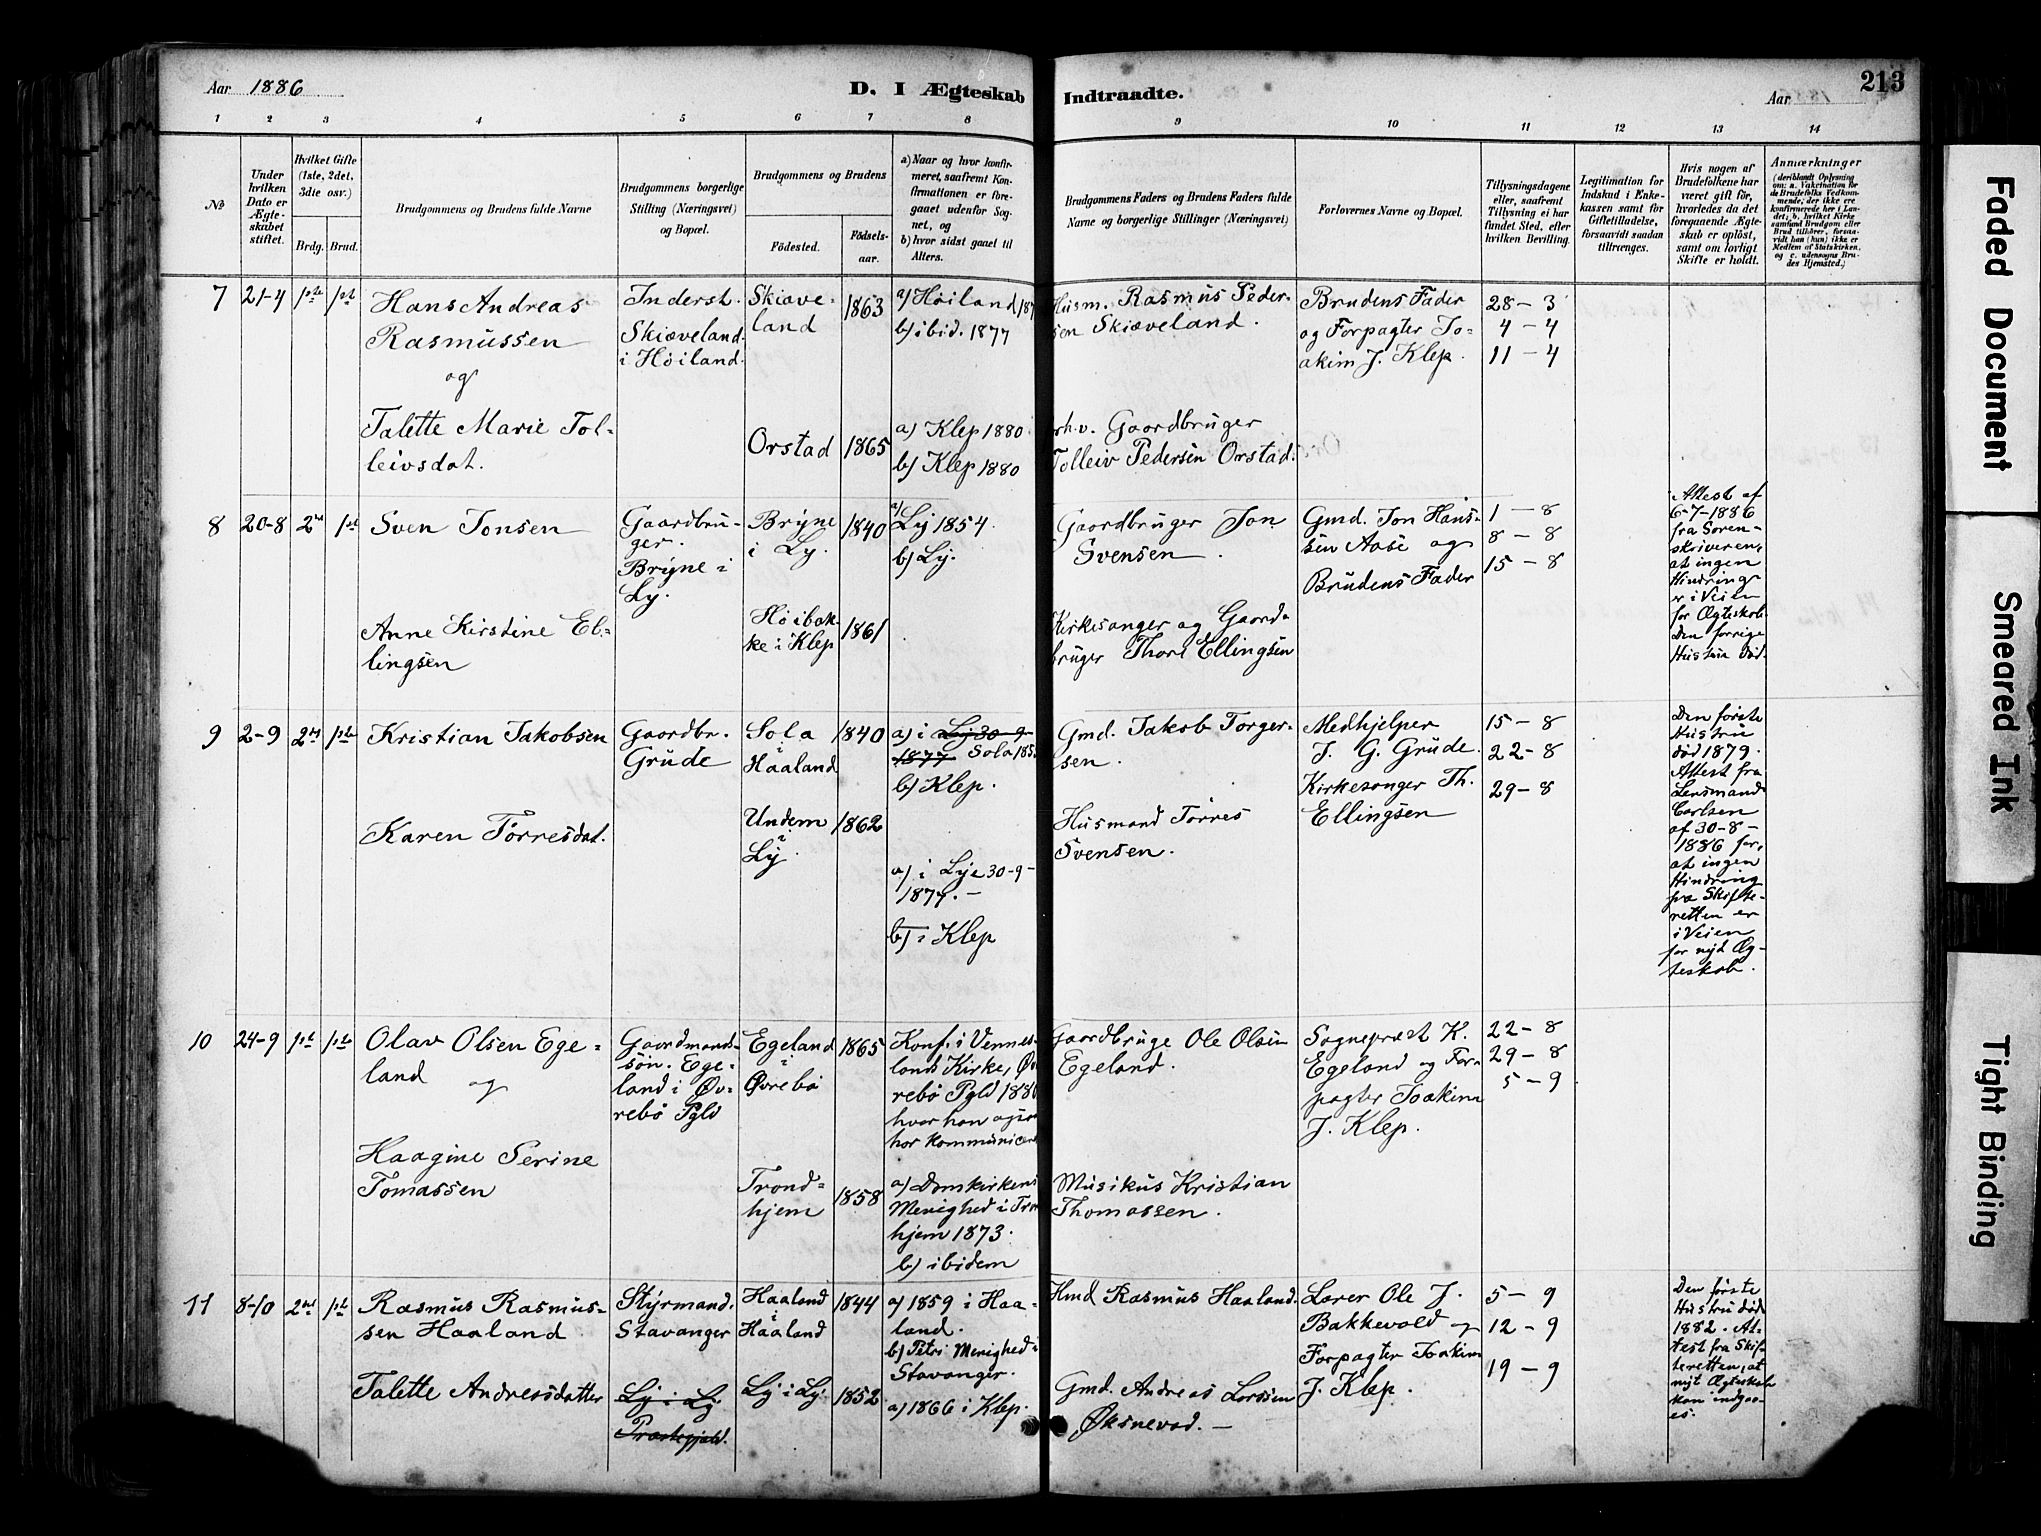 Aar 1886
D. I Ægteskab
Indtraadte.
Aar
213
1 2 3 4 5 6 7 8 9 10 11 12 13 14
No
Under
hvilken
Dato er
Ægte-
skabet
stiftet.
Hvilket Gifte
(1ste, 2det,
3die osv.)
Brdg. Brud.
Brudgommens og Brudens fulde Navne
Brudgommens borgerlige
Stilling (Næringsvei)
og Bopæl.
Brudgommens og Brudens
Fødested.
Fødsels-
aar.
a) Naar og hvor konfir-
meret, saafremt Kon-
firmationen er fore-
gaaet udenfor Sog-
net, og
b) hvor sidst gaaet til
Alters.
Brudgommens Faders og Brudens Faders fulde
Navne og borgerlige Stillinger (Næringsvei)
Forlovernes Navne og Bopæl.
Tillysningsdagene
eller, saafremt
Tillysning ei har
fundet Sted, efter
hvilken Bevilling.
Legitimation for
Indskud i Enke-
kassen samt for
Giftetilladelse,
forsaavidt saadan
tiltrænges.
Hvis nogen af
Brudefolkene har
været gift før,
hvorledes da det
foregaaende Ægte-
skab er opløst,
samt om lovligt
Skifte er holdt.
Anmærkninger
(deriblandt Oplysning
om: a. Vakcination for
de Brudefolks Vedkom-
mende, der ikke ere
konfirmerede her i Lan-
det; b. hvilket Kirke-
samfund Brudgom eller
Brud tilhører, forsaa-
vidt han (hun) ikke er
Medlem af Statskirken,
og c. udensogns Bru-
des Hjemsted.)
7 21-4 1ste 1st
Hans Andreas
Rasmussen
og
Talette Marie Tol-
leivsdat.
Inderst.
Skiæveland
i Høiland.
Skiæve-
land
1863
a) Høiland 187
b) ibid. 1877
Orstad
1865
a) Klep 1880
b) Klep 1880
Husm. Rasmus Peder-
sen Skiæveland.
Gaardbruger
Tolleiv Pedersen Orstad.
Brudens Fader
og Forpagter Jo-
akim J. Klep.
28-3
4-4
11-4
8 20-8 2det 1st
Sven Jonsen
Anne Kirstine El-
lingsen
Gaardbru-
ger.
Bryne i
Ly.
Bryne
i Ly.
1840
a) Ly 1854.
b) Ly.
Høibak-
ke i Klep
1861
Gaardbruger Jon
Svensen.
Kirkesanger og Gaard-
bruger Thore Ellingsen
Gmd. Jon Hans-
sen Aase og
Brudens Fader
1-8
8-8
15-8
Attest af
6-7-1886
fra Soren-
skriveren,
at ingen
Hindring
er i Veien
for Ægteskab.
Den forrige
Hustru død.
9 2-9 2det 1ste
Kristian Jakobsen
Karen Tørresdat.
Gaardbr.
Grude
Sola
i
Haaland
1840
a) i Ly 30-9-
1877 Sola 185
b) Klep.
Undem
i
Ly.
1862
a) i Lye 30-9-
1877.-
b) i Klep
Gmd. Jakob Torger-
sen.
Husmand Tørres
Svensen.
Medhjelper
J. G. Grude.
Kirkesanger Th.
Ellingsen
15-8
22-8
29-8
Den første
Hustru
død 1879.
Attest fra
Lensmand
Carlsen
af 30-8-
1886 for,
at ingen
Hindring
fra Skifte-
retten er
i Veien
for nyt Æg-
teskab.
10 24-9 1st 1ste
Olav Olsen Ege-
land
og
Haagine Serine
Tomassen
Gaardmands-
søn. Ege-
land i Øv-
rebø Pgld
Egeland
i
Øvrebø
1865
Konf. i Vennes-
lands Kirke, Øv
rebø Pgld 188
hvor han ogsaa
har kommunicer
Trond-
hjem
1858
a) Domkirkens
Menighed i Tron
hjem 1873.
b) ibidem
Gaardbruge Ole Olsen
Egeland.
Musikus Kristian
Thomassen.
Sognepræst K.
Egeland og For-
pagter Joakim
J. Klep.
22-8
29-8
5-9
11 8-10 2det 1ste
Rasmus Rasmus-
sen Haaland
Talette Andreasdatter
Styrmand.
Stavanger
Ly i Ly
Præstegjeld.
Haaland
i
Haaland
1844
a) 1859 i Haa-
land.
b) Petri Menighed i
Stavanger.
Ly i Ly.
1852
a) 1866 i Klep.
Hmd Rasmus Haaland.
Gmd. Andreas Larssen
Øksnevad.-
Lærer Ole J.
Bakkevold og
Forpagter Joakim
J. Klep.
5-9
12-9
19-9
Den første
Hustru død
1882. At-
test fra Skif-
teretten, at
nyt Ægteskab
kan indgaa-
es.
Faded Document
Smeared Ink
Tight Binding